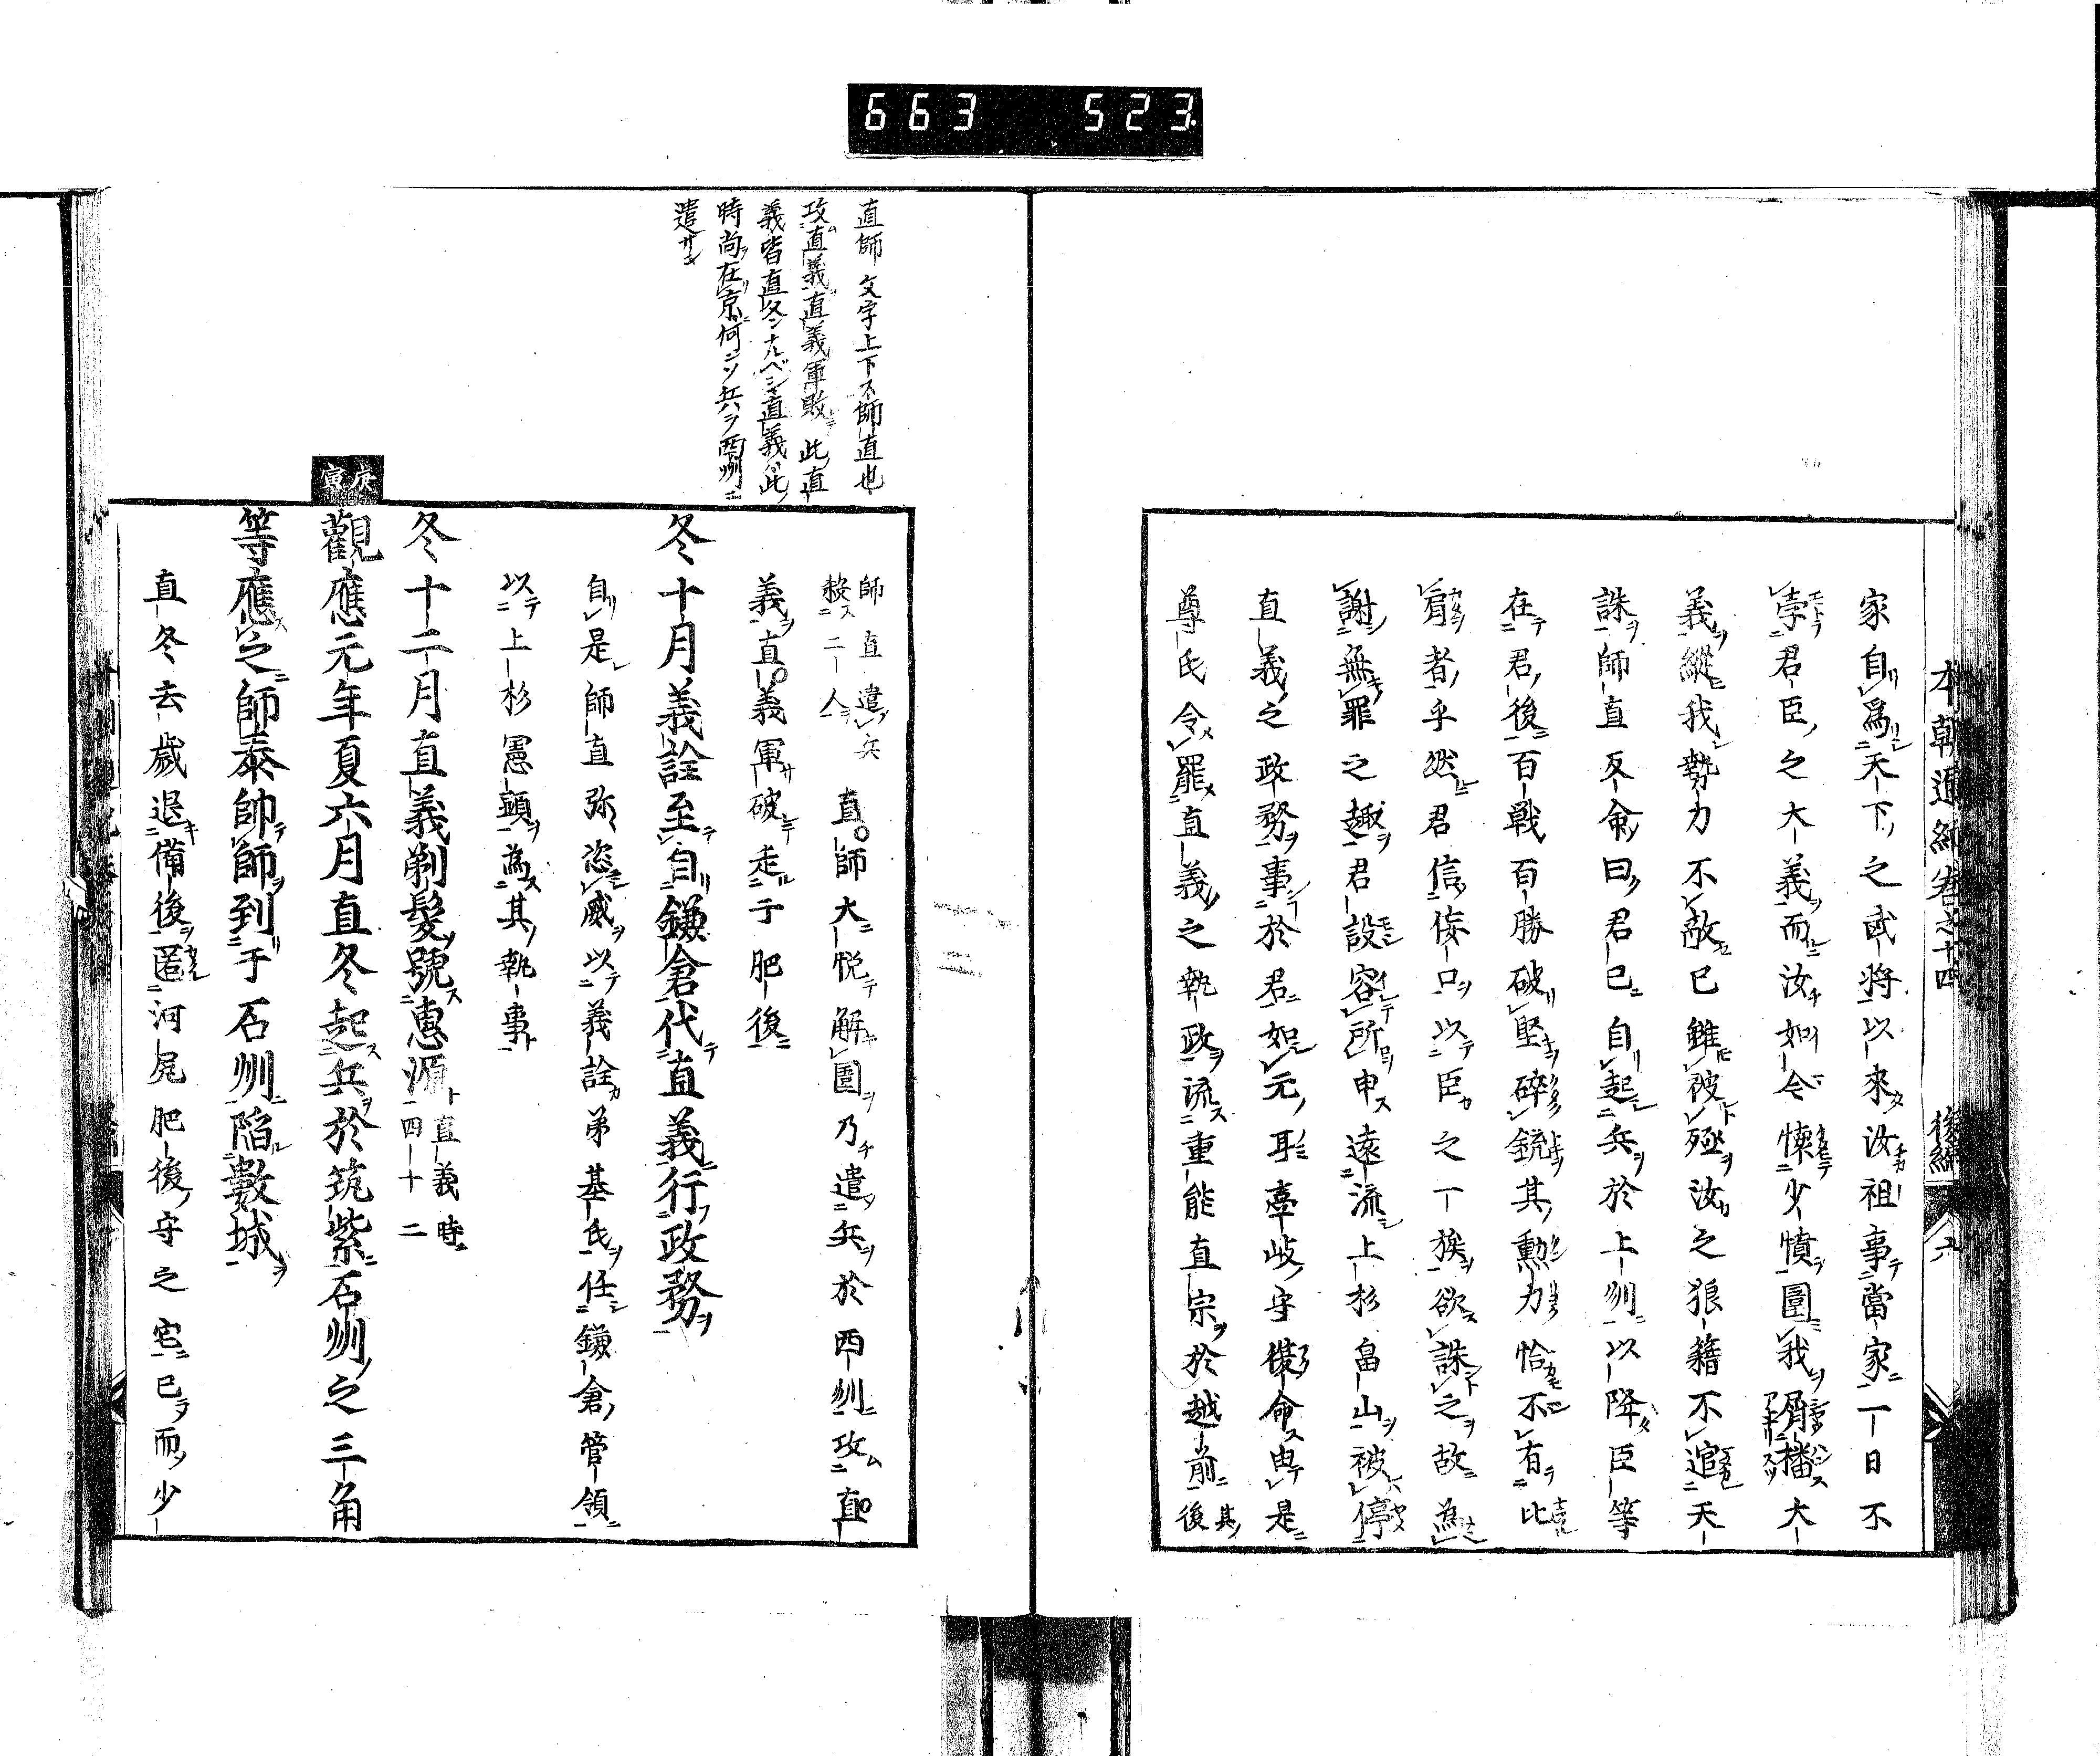 663 523
本朝通紀卷之十四 後編
家自爲天下之武將以來汝祖事當家一日不
君臣之大義而汝如令懐少憤圍我屑播大
義縱我勢力不敵已雖被殛汝之狼籍不追天
誅師直反命曰君已自起兵於上州以降臣等
在君後百戰百勝破堅碎銳其勲力恰不有比
肩者乎然君信侫口以臣之一族欲誅之故為
謝無罪之趣君設容所申遠流上杉畠山被停
直義之政務事於君如元耳壹岐守復命由是
尊氏令罷直義之執政流重能直宗於越前其後
師直遣兵
殺二人
直師大悦解圍乃遣兵於西州攻直
義直義軍破走于肥後
冬十月義詮至自鎌倉代直義行政務
自是師直弥恣威以義詮弟基氏任鎌倉管領
以上杉憲顕為其執事
冬十二月直義剃髮號惠源直義時
四十二
庚寅
觀應元年夏六月直冬起兵於筑紫石州之三角
等應之師泰帥師到于石州陷數城
直冬去歳退備後匿河尻肥後守之宅已而少
直師文字上下ス師直也
攻直義直義軍敗此直
義皆直冬ナルベシ直義此
時尚在京何ソ兵ヲ西州ニ
遣サン